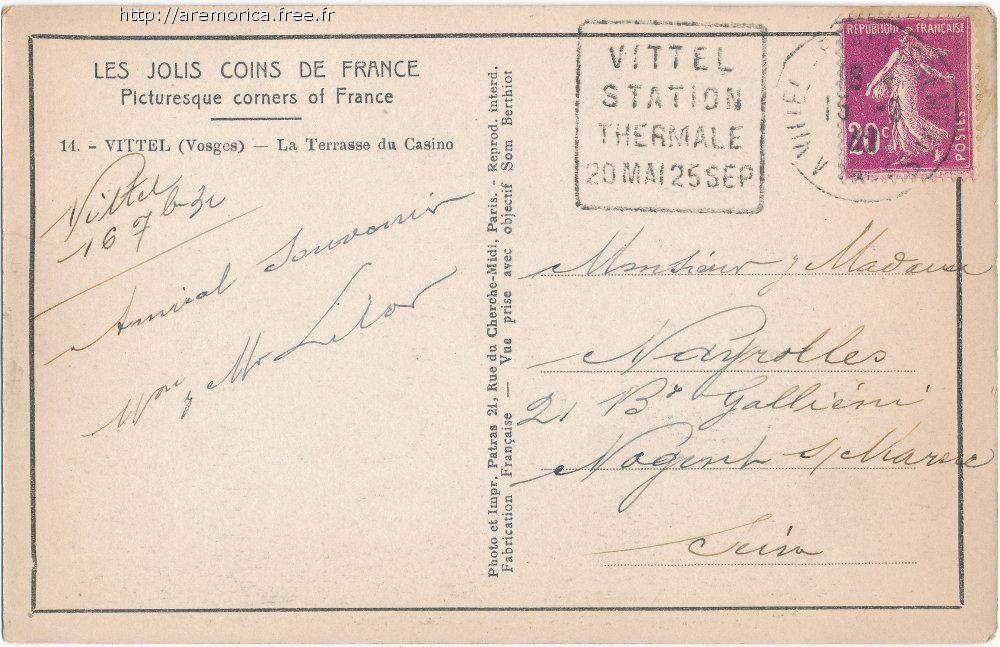 http://aremorica.free.fr
LES JOLIS COINS DE FRANCE
Picturesque corners of France
14. - VITTEL (Vosges) — La Terrasse du Casino
Vittel
16 7
Amical Souvenir
Photo et Impr. Patras 21, Rue du Cherche-Midi, Paris. - Reprod. interd.
Fabrication Française — Vue prise avec objectif Som Berthiot
VITTEL
STATION
THERMALE
20 MAI 25 SEP
REPUBLIQUE FRANÇAISE
20c
POSTES
VITTEL
Monsieur y Madame
Nayrolles
21 Bd Galliéni
Nogent s/ Marne
Seine